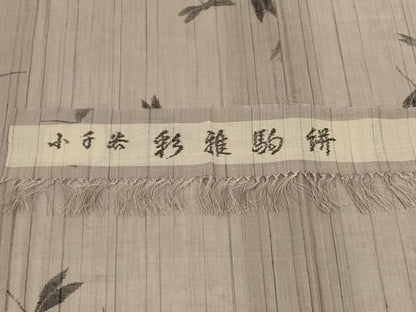 小千谷 彩雅駒絣